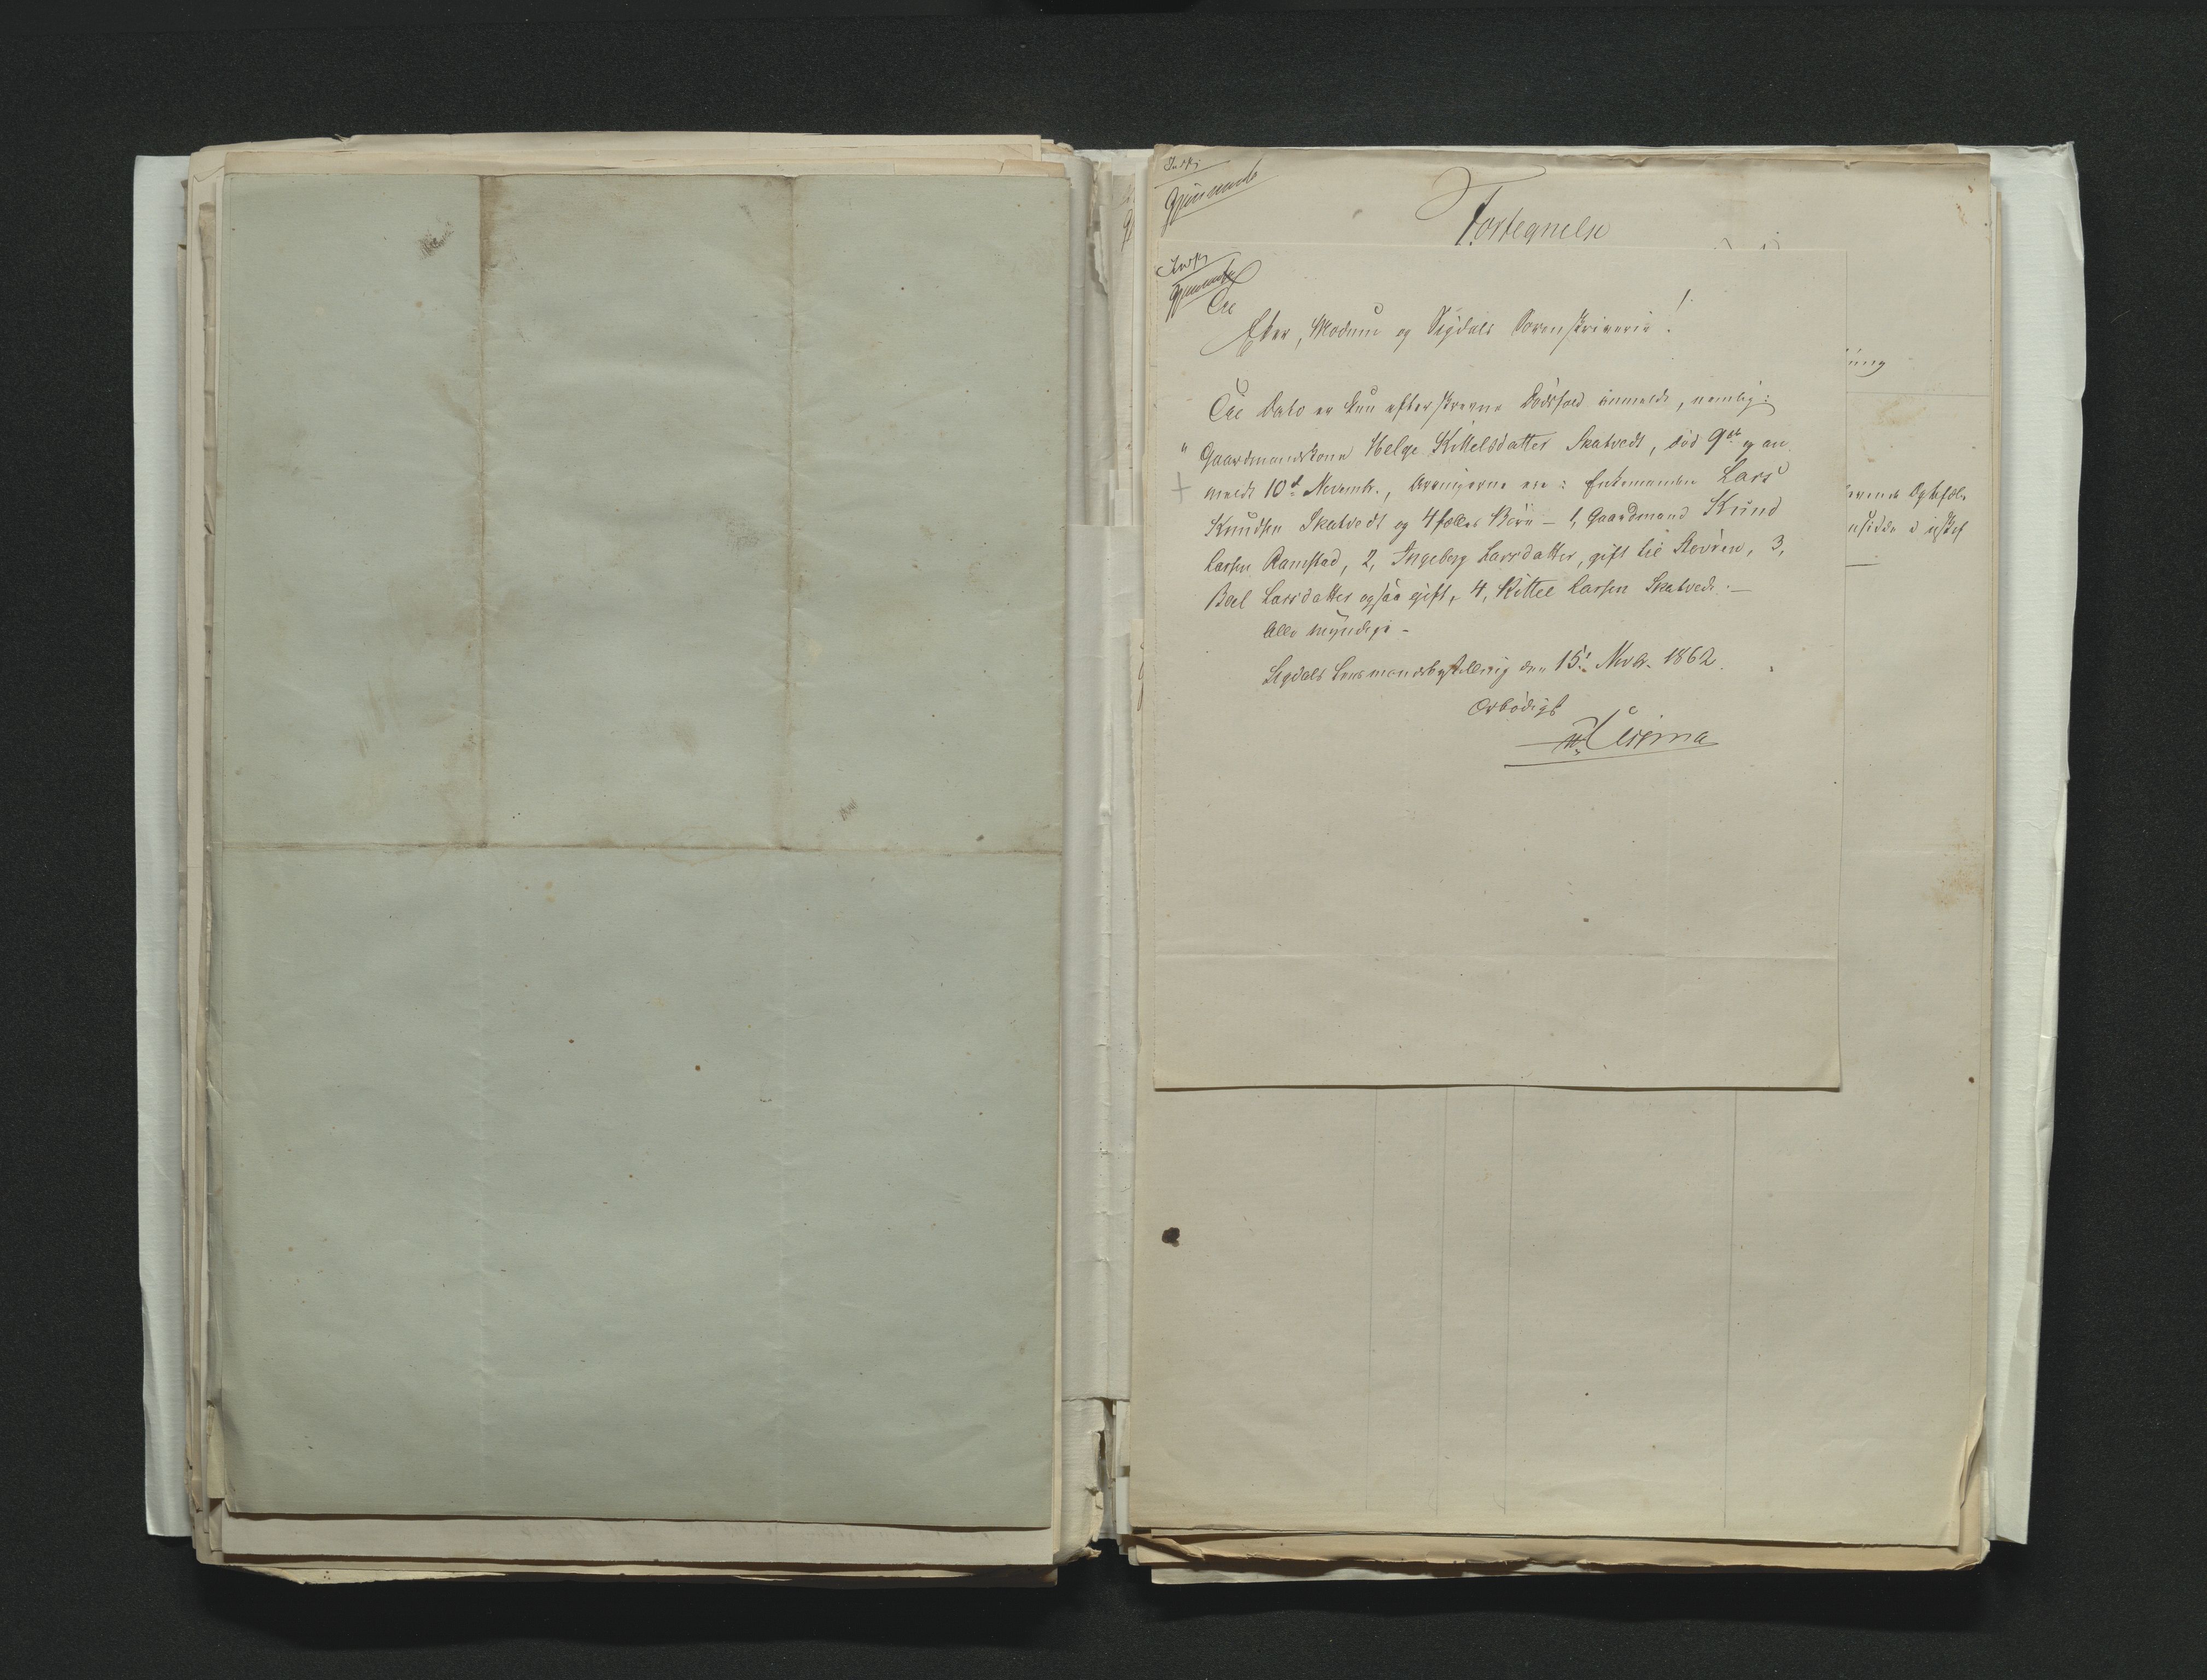 Indf:
Gjennemli
Fortegnelse
Indf:
Til
Eker, Modum og Sigdals Sorenskriveri!
Til Dato er kun efterskrevne Dødsfald anmeldt, nemlig:
" Gaardmandskone Helge Kittelsdatter Skatvedt, død 9de og an
meldt 10d Novemb., Arvingerne ere: Enkemanden Lars
Knudsen Skatvedt og 4 fælles Børn – 1, Gaardmand Knud
Larsen Ramstad, 2, Ingeborg Larsdatter, gift til 3,
Boel Larsdatter ogsaa gift, 4, Kittel Larsen Skatvedt. –
Alle myndige –
Sigdals Lensmandsbestilling den 15. Novb. 1862.
Ærbødigst
ing